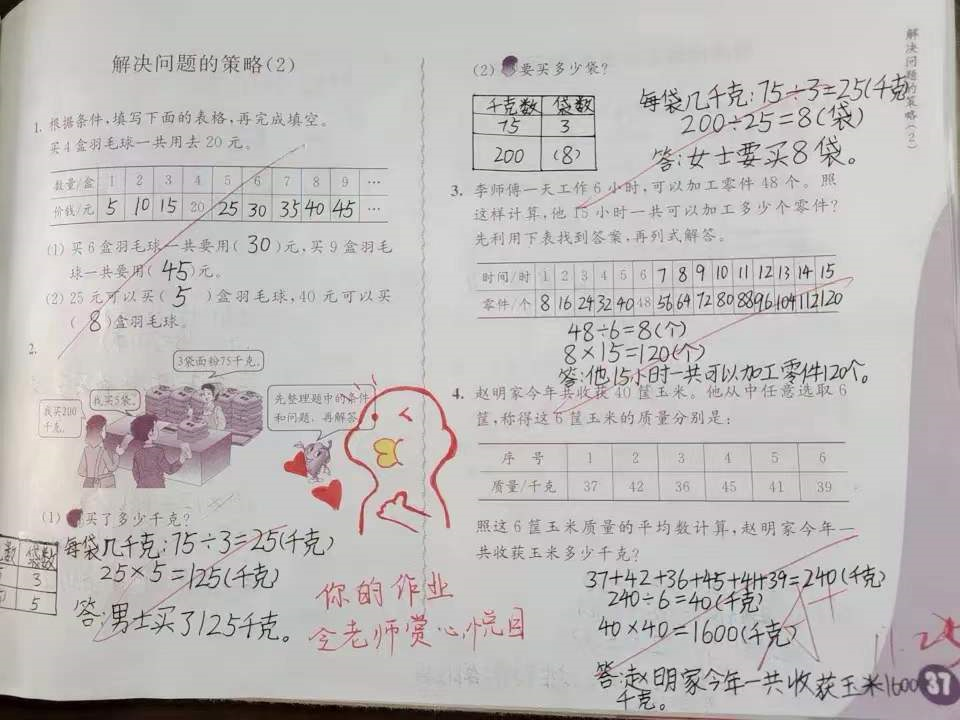 解决问题的策略(2)
1. 根据条件,填写下面的表格,再完成填空。
买4盒羽毛球一共用去20元。
数量/盒 1 2 3 4 5 6 7 8 9 …
价钱/元 5 10 15 20 25 30 35 40 45 …
(1) 买6盒羽毛球一共要用( 30 )元,买9盒羽毛
球一共要用( 45 )元。
(2) 25元可以买( 5 )盒羽毛球,40元可以买
( 8 )盒羽毛球。
2.
3袋面粉75千克。
我买200
千克。
我买5袋。
先整理题中的条件
和问题,再解答。
(1) 买了多少千克?
数 袋数
3
5
每袋几千克:75÷3=25(千克)
25×5=125(千克)
答:男士买了125千克。
你的作业
令老师赏心悦目
(2) 要买多少袋?
千克数 袋数
75 3
200 (8)
每袋几千克:75÷3=25(千克)
200÷25=8(袋)
答:女士要买8袋。
3. 李师傅一天工作6小时,可以加工零件48个。照
这样计算,他15小时一共可以加工多少个零件?
先利用下表找到答案,再列式解答。
时间/时 1 2 3 4 5 6 7 8 9 10 11 12 13 14 15
零件/个 8 16 24 32 40 48 56 64 72 80 88 96 104 112 120
48÷6=8(个)
8×15=120(个)
答:他15小时一共可以加工零件120个。
4. 赵明家今年共收获40筐玉米。他从中任意选取6
筐,称得这6筐玉米的质量分别是:
序号 1 2 3 4 5 6
质量/千克 37 42 36 45 41 39
照这6筐玉米质量的平均数计算,赵明家今年一
共收获玉米多少千克?
37+42+36+45+41+39=240(千克)
240÷6=40(千克)
40×40=1600(千克)
答:赵明家今年一共收获玉米1600
千克。
A+
11.25
37
解决问题的策略(2)